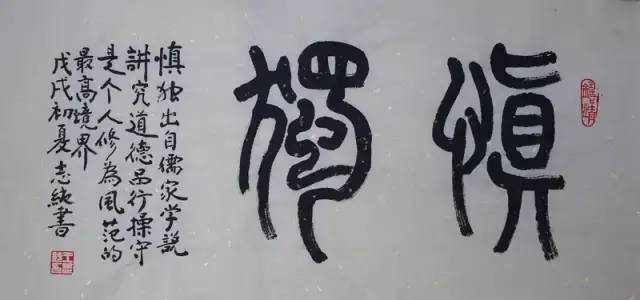 慎獨
慎独出自儒家学説
講究道德品行操守
是个人修為風范的
最高境界
戊戌初夏 志純書